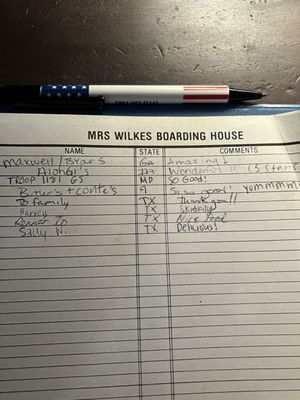 MRS WILKES BOARDING HOUSE
NAME STATE COMMENTS
Maxwell/Byars GA Amazing!
Wonderful!! (5 Star
TROOP 1181 GS MD SO GOOD!
+ Conte's So so good! yummmm
To family TX Thank you!!
Harvey TX
TX Nice Food
Sally N. TX Delicious!